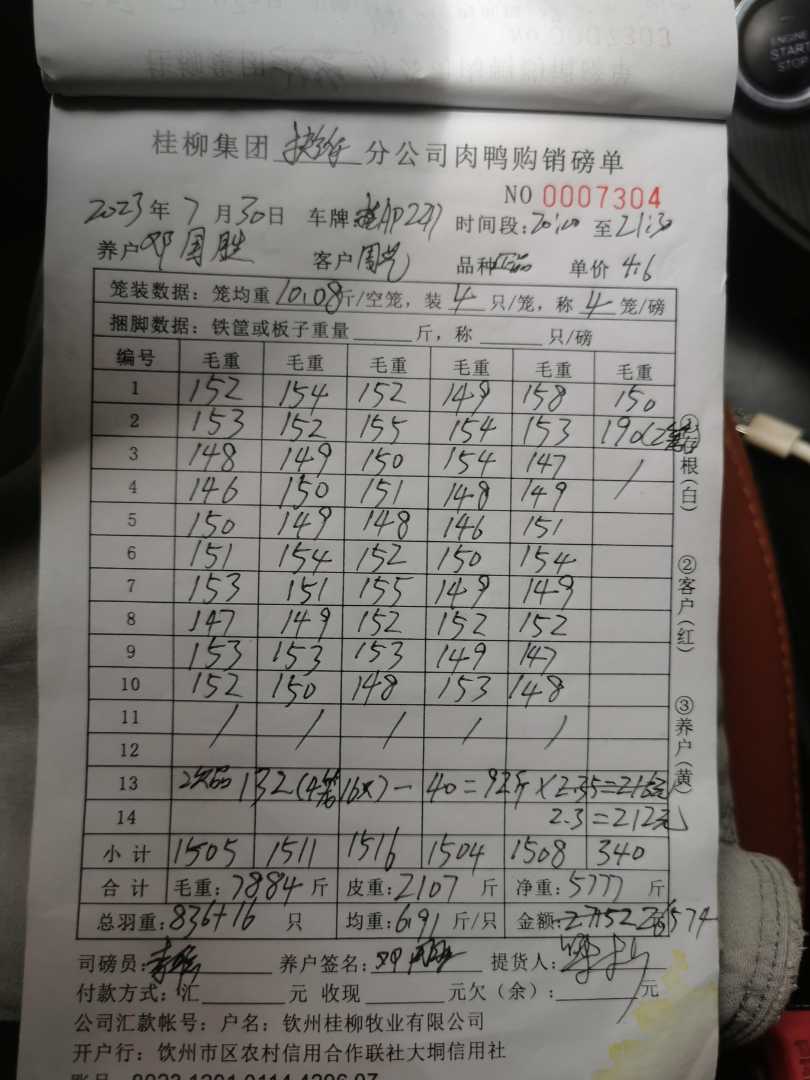 桂柳集团 分公司肉鸭购销磅单
NO 0007304
2023年7月30日 车牌 AP247 时间段:20:00 至21:30
养户 邓国胜 客户 周 品种 正品 单价 4.6
笼装数据:笼均重10.08斤/空笼,装 4 只/笼,称 4 笼/磅
捆脚数据:铁筐或板子重量 斤,称 只/磅
编号 毛重 毛重 毛重 毛重 毛重 毛重
1 152 154 152 149 158 150
2 153 152 155 154 153 190(2笼)
3 148 149 150 154 147 /
4 146 150 151 148 149
5 150 149 148 146 151
6 151 154 152 150 154
7 153 151 155 149 149
8 147 149 152 152 152
9 153 153 153 149 147
10 152 150 148 153 148
11 / / / / /
12
13 次品 132(4笼16只)-40=92斤×2.35=216元
14 2.3=212元
小计 1505 1511 1516 1504 1508 340
合计 毛重:7884斤 皮重:2107斤 净重:5777斤
总羽重:836+16 只 均重:6.91 斤/只 金额:27152 26574
司磅员: 养户签名: 提货人:
付款方式:汇 元 收现 元欠(余): 元
公司汇款帐号:户名:钦州桂柳牧业有限公司
开户行:钦州市区农村信用合作联社大垌信用社
①存根(白)
②客户(红)
③养户(黄)
ENGINE
START
STOP